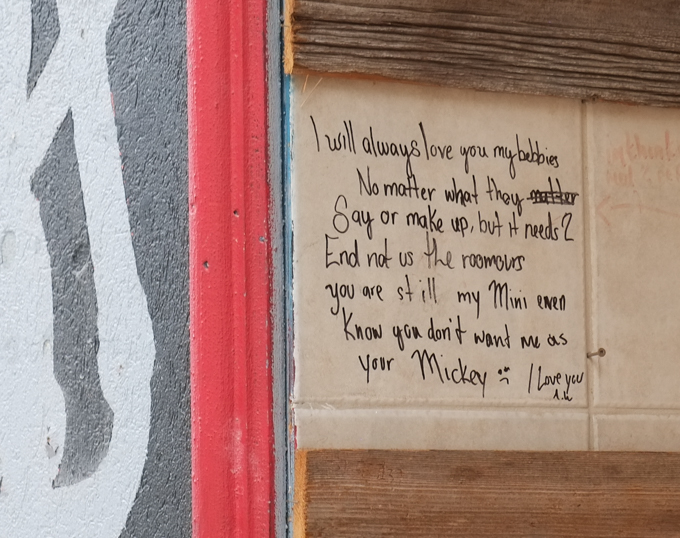 I will always love you my bebbies
No matter what they matter
Say or make up, but it needs 2
End not us the roomours
you are still my Mini even
Know you don't want me as
your Mickey :(
I Love you